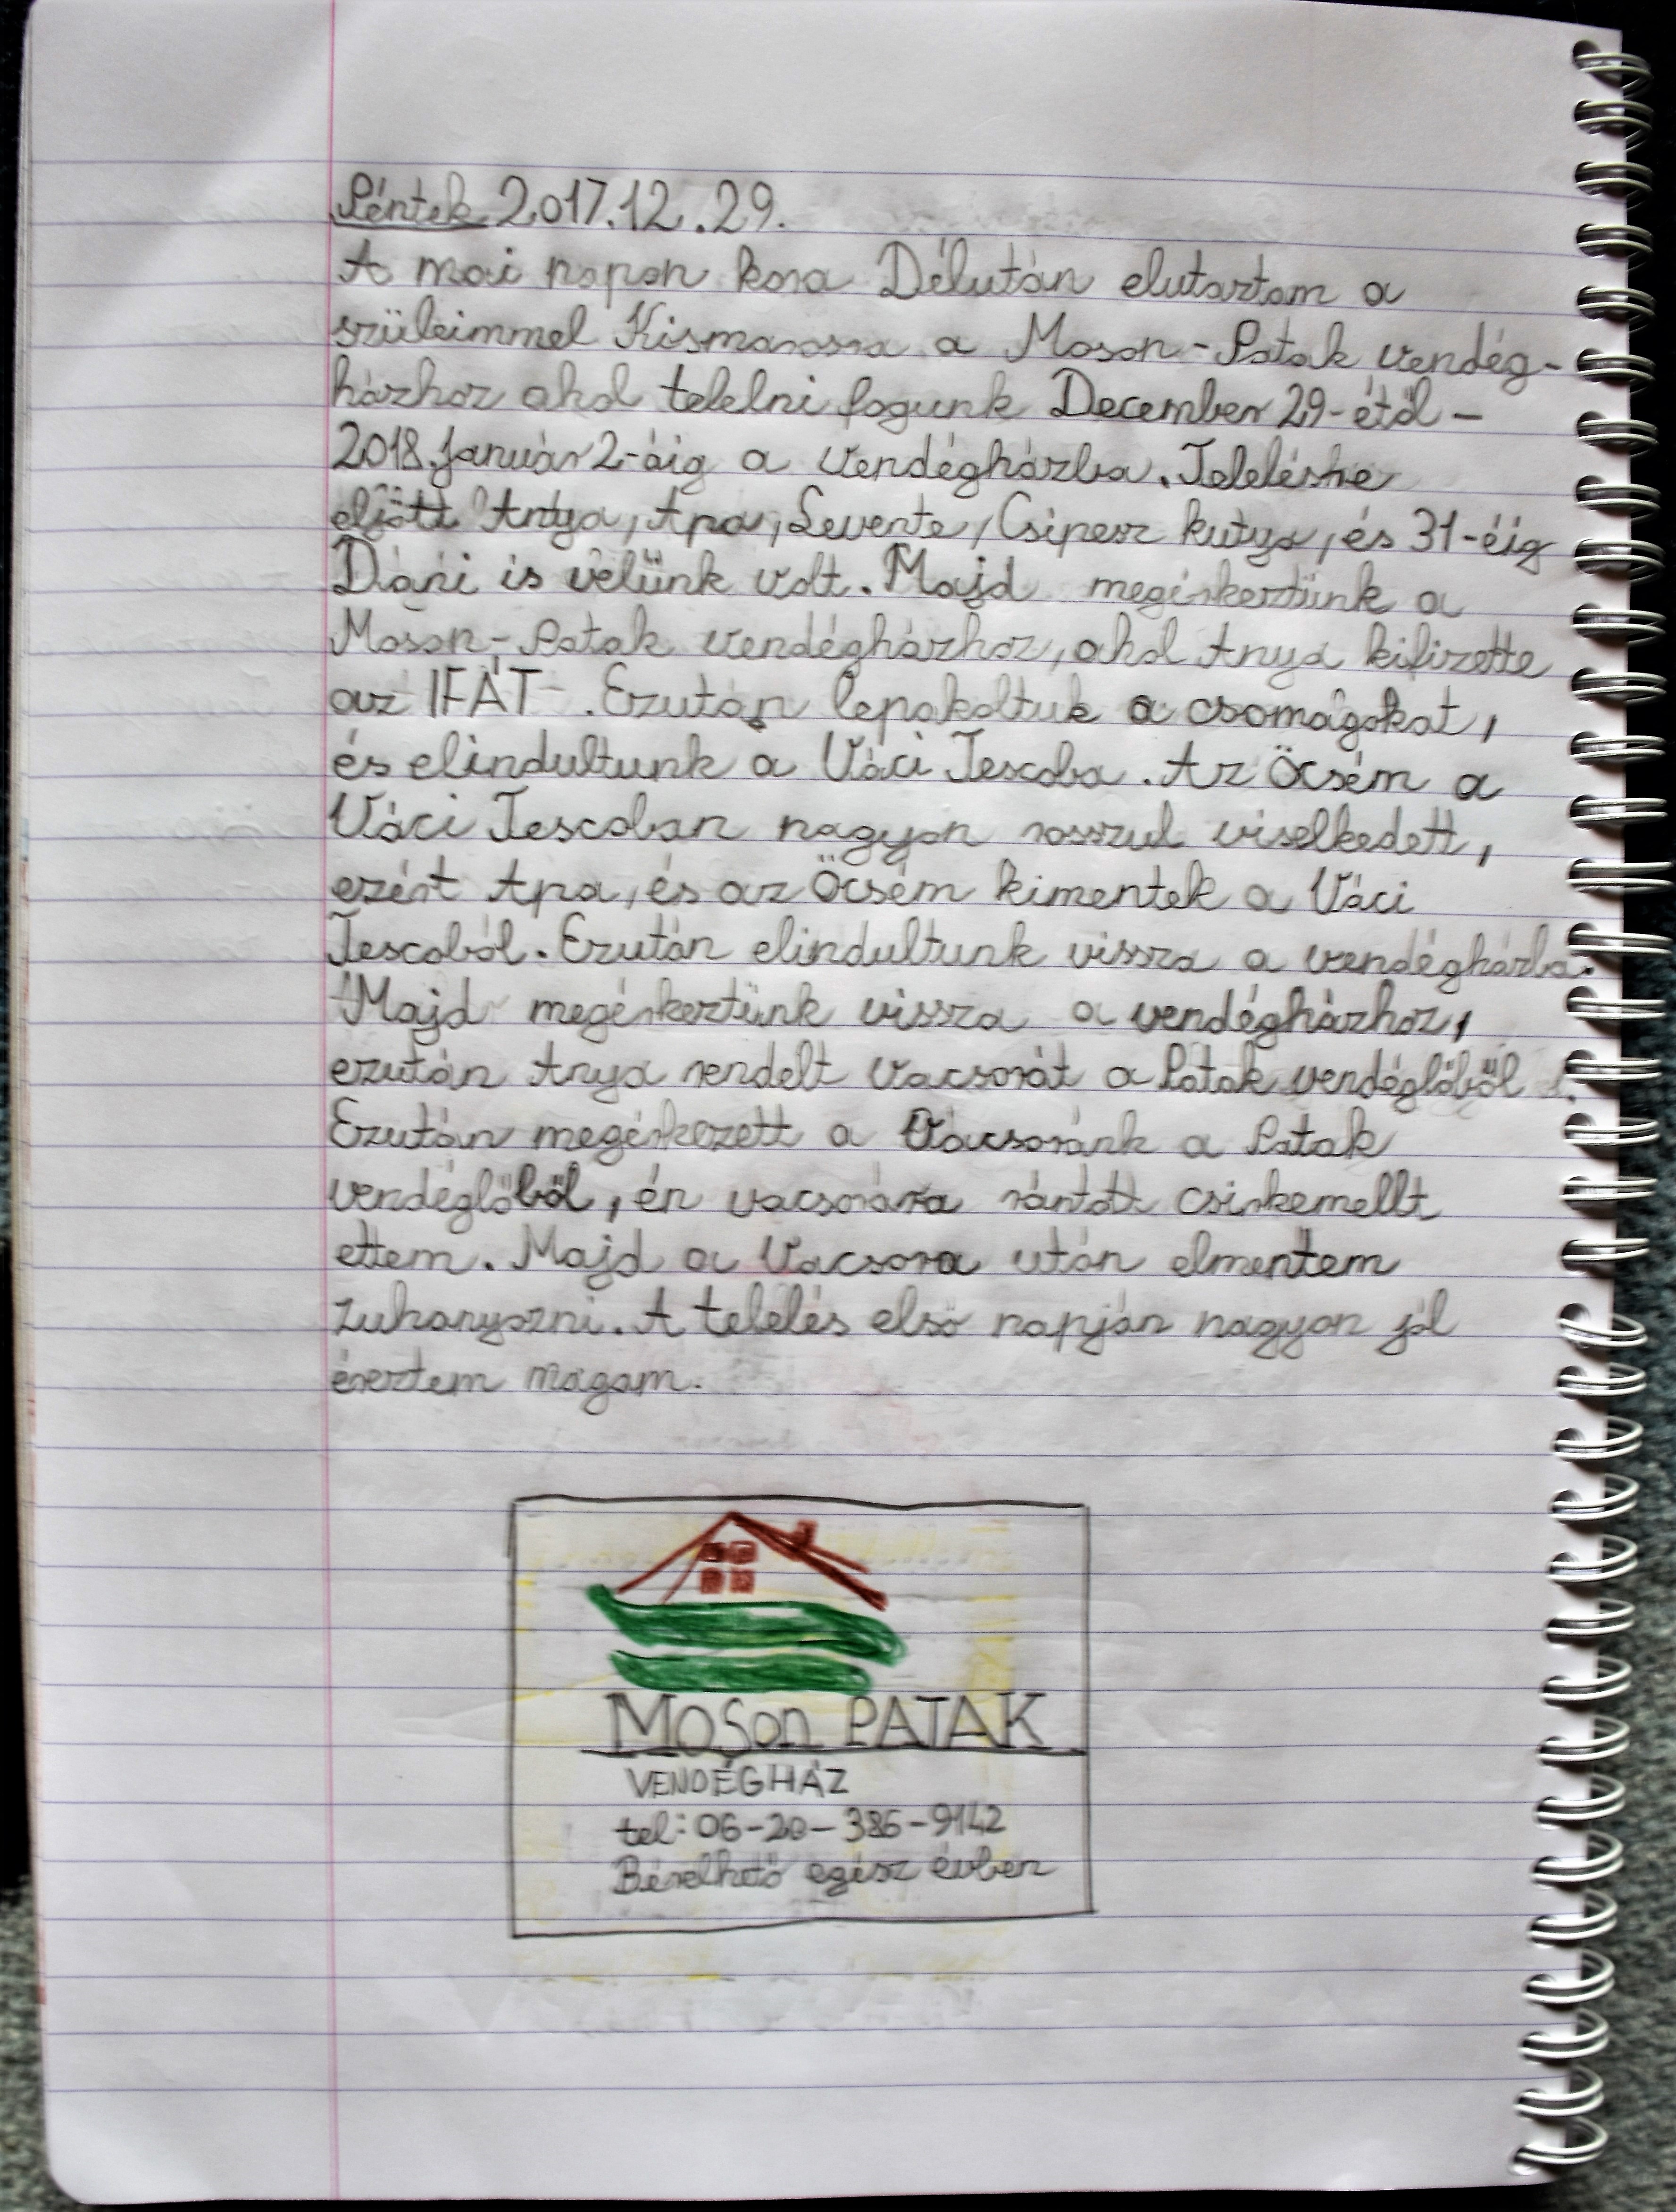 Péntek 2017.12.29.
A mai napon kora Délután elutaztam a
szüleimmel Kismarosra a Moson-Patak vendég-
házhoz ahol telelni fogunk December 29-étől -
2018.Január 2-áig a vendégházba. Telelésre
eljött Anya, Apa, Levente, Csipesz kutya, és 31-éig
Diáni is velünk volt. Majd megérkeztünk a
Moson-Patak vendégházhoz, ahol Anya kifizette
az IFÁT. Ezután lepakoltuk a csomagokat,
és elindultunk a Váci Tescoba. Az Öcsém a
Váci Tescoban nagyon rosszul viselkedett,
ezért Apa, és az Öcsém kimentek a Váci
Tescoból. Ezután elindultunk vissza a vendégházba.
Majd megérkeztünk vissza a vendégházhoz,
ezután Anya rendelt Vacsorát a Patak vendéglőből.
Ezután megérkezett a Vacsoránk a Patak
vendéglőből, én vacsorára rántott csirkemellt
ettem. Majd a Vacsora után elmentem
zuhanyozni. A telelés első napján nagyon jól
éreztem magam.
MOSon PATAK
VENDÉGHÁZ
tel: 06-20-386-9142
Bérelhető egész évben